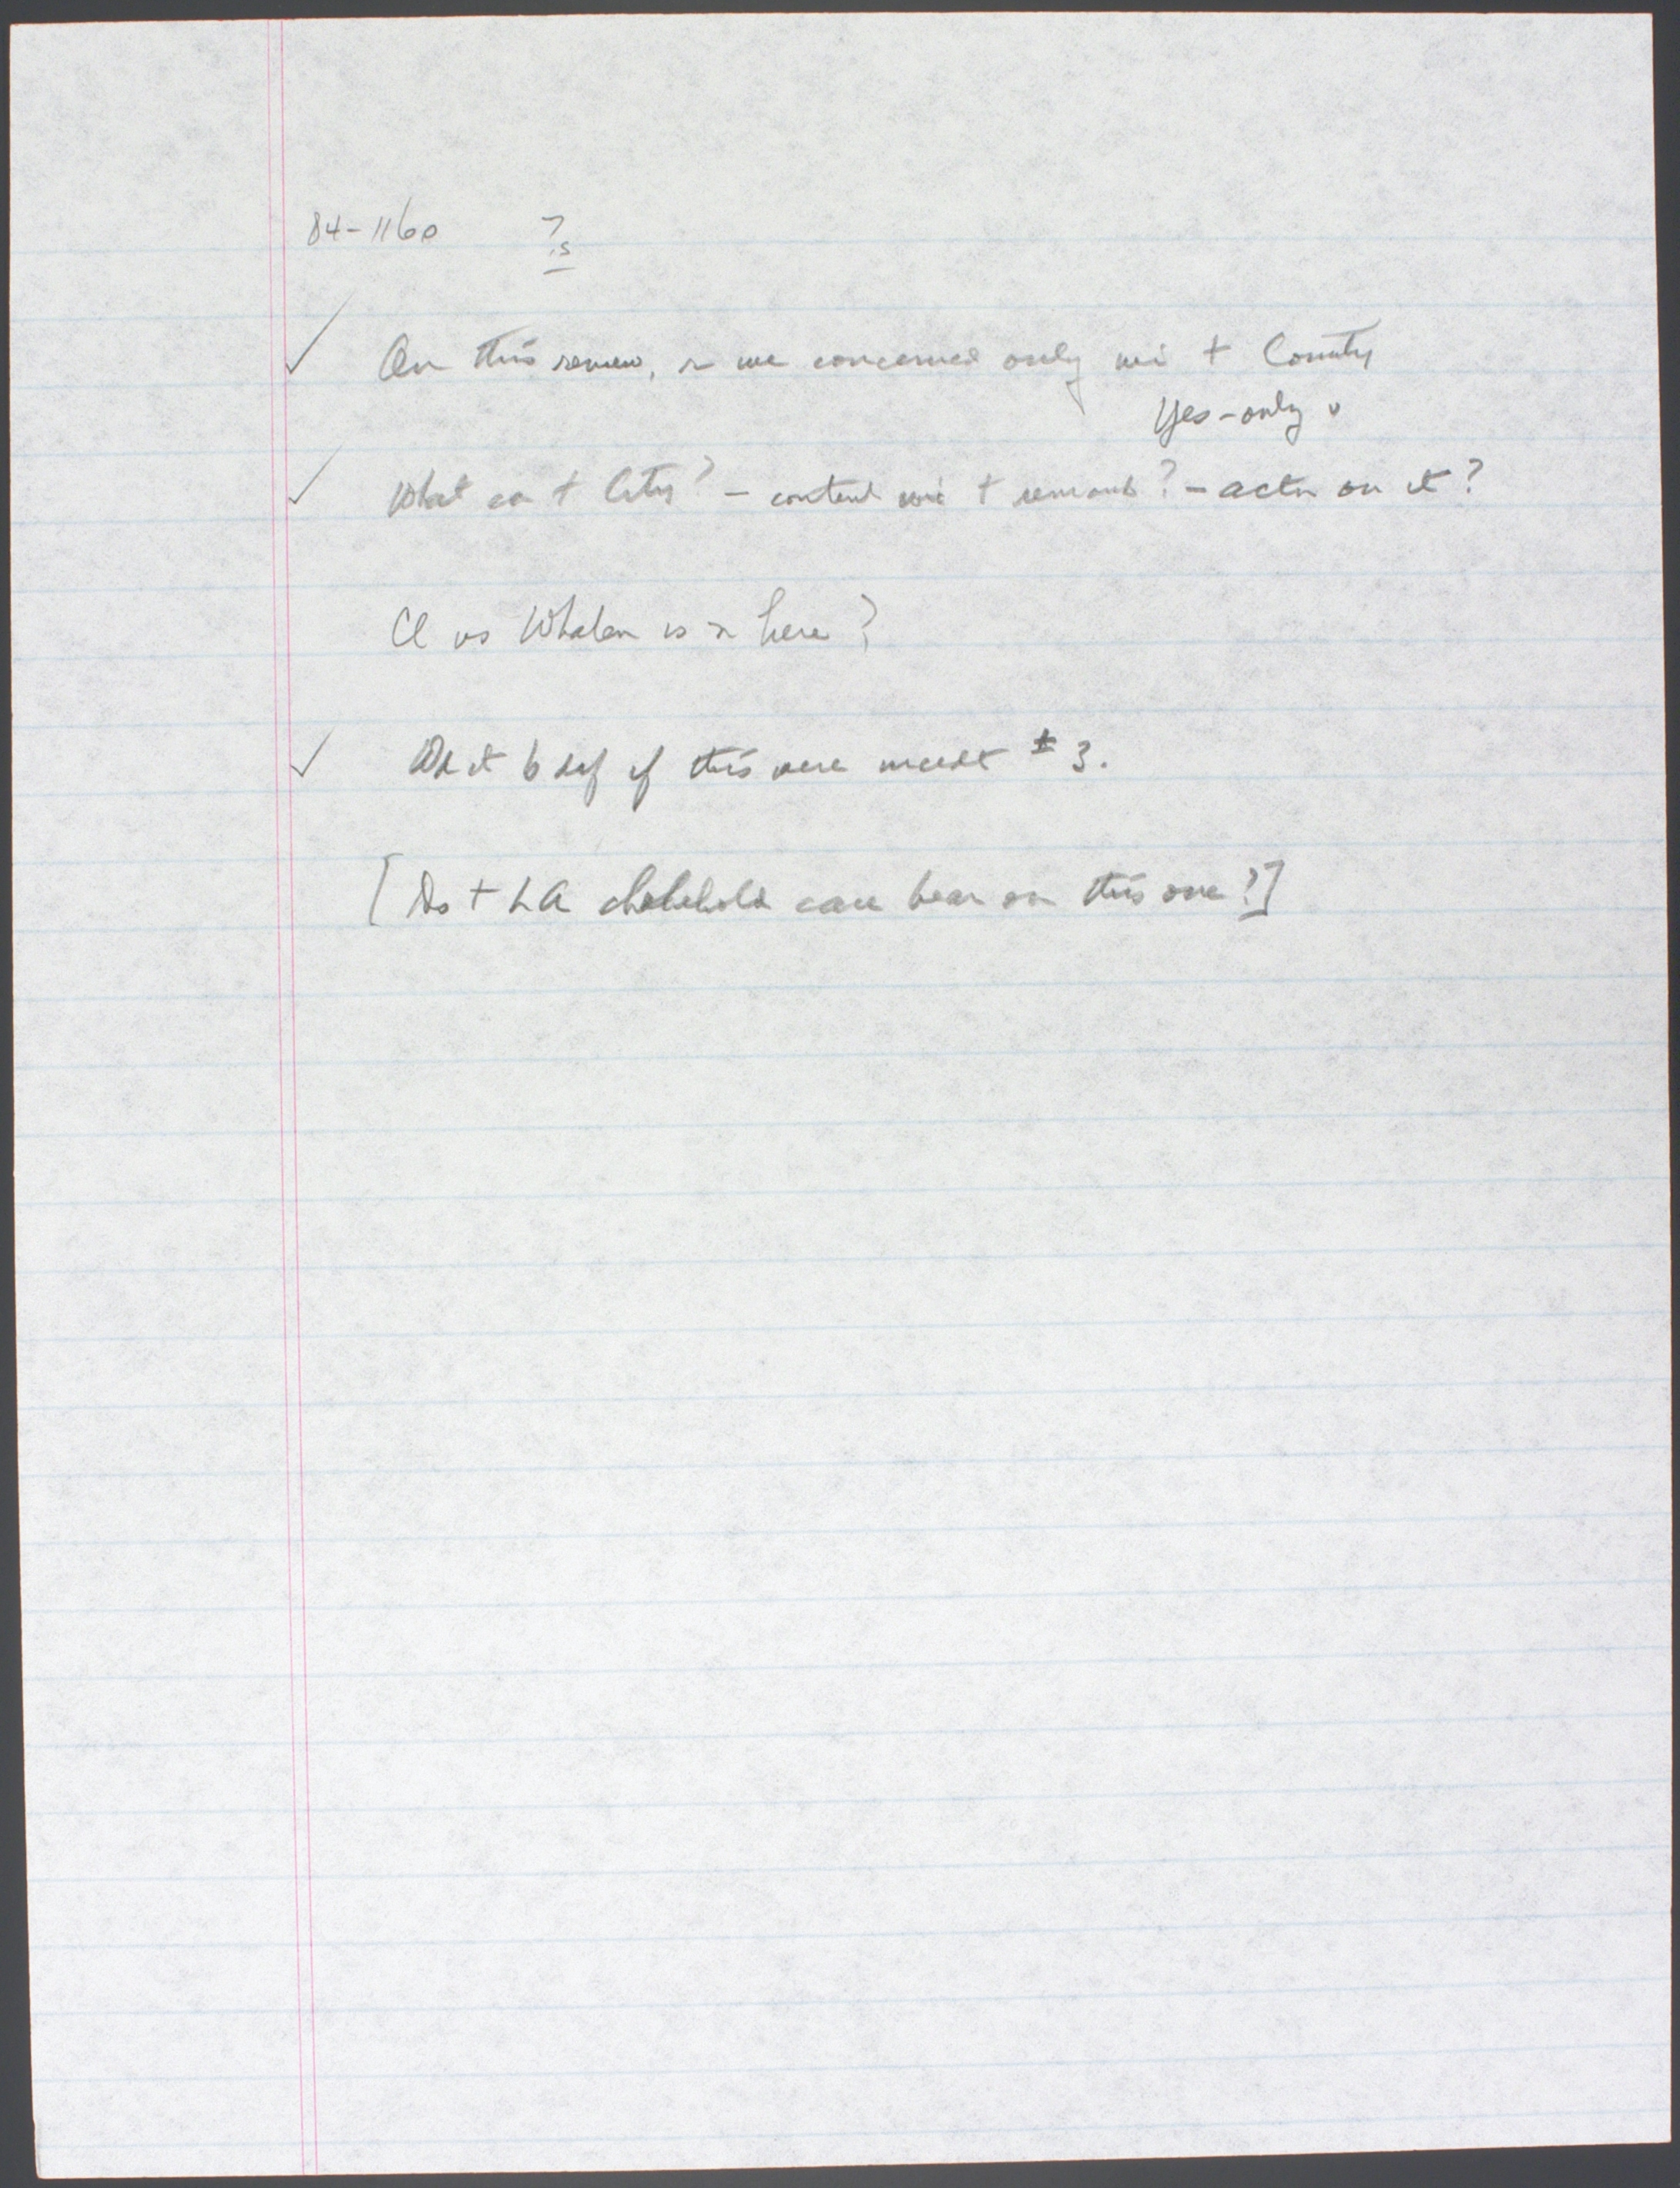 84-1160 ?s
✓ On this review, r we concerned only wi t County
Yes-only
✓ What ca t City? - content wi t remand? - actn on it?
Cl vs Whalen is n here?
✓ Wd it b df if this were incdt # 3.
[Do t LA chokehold case bear on this one?]